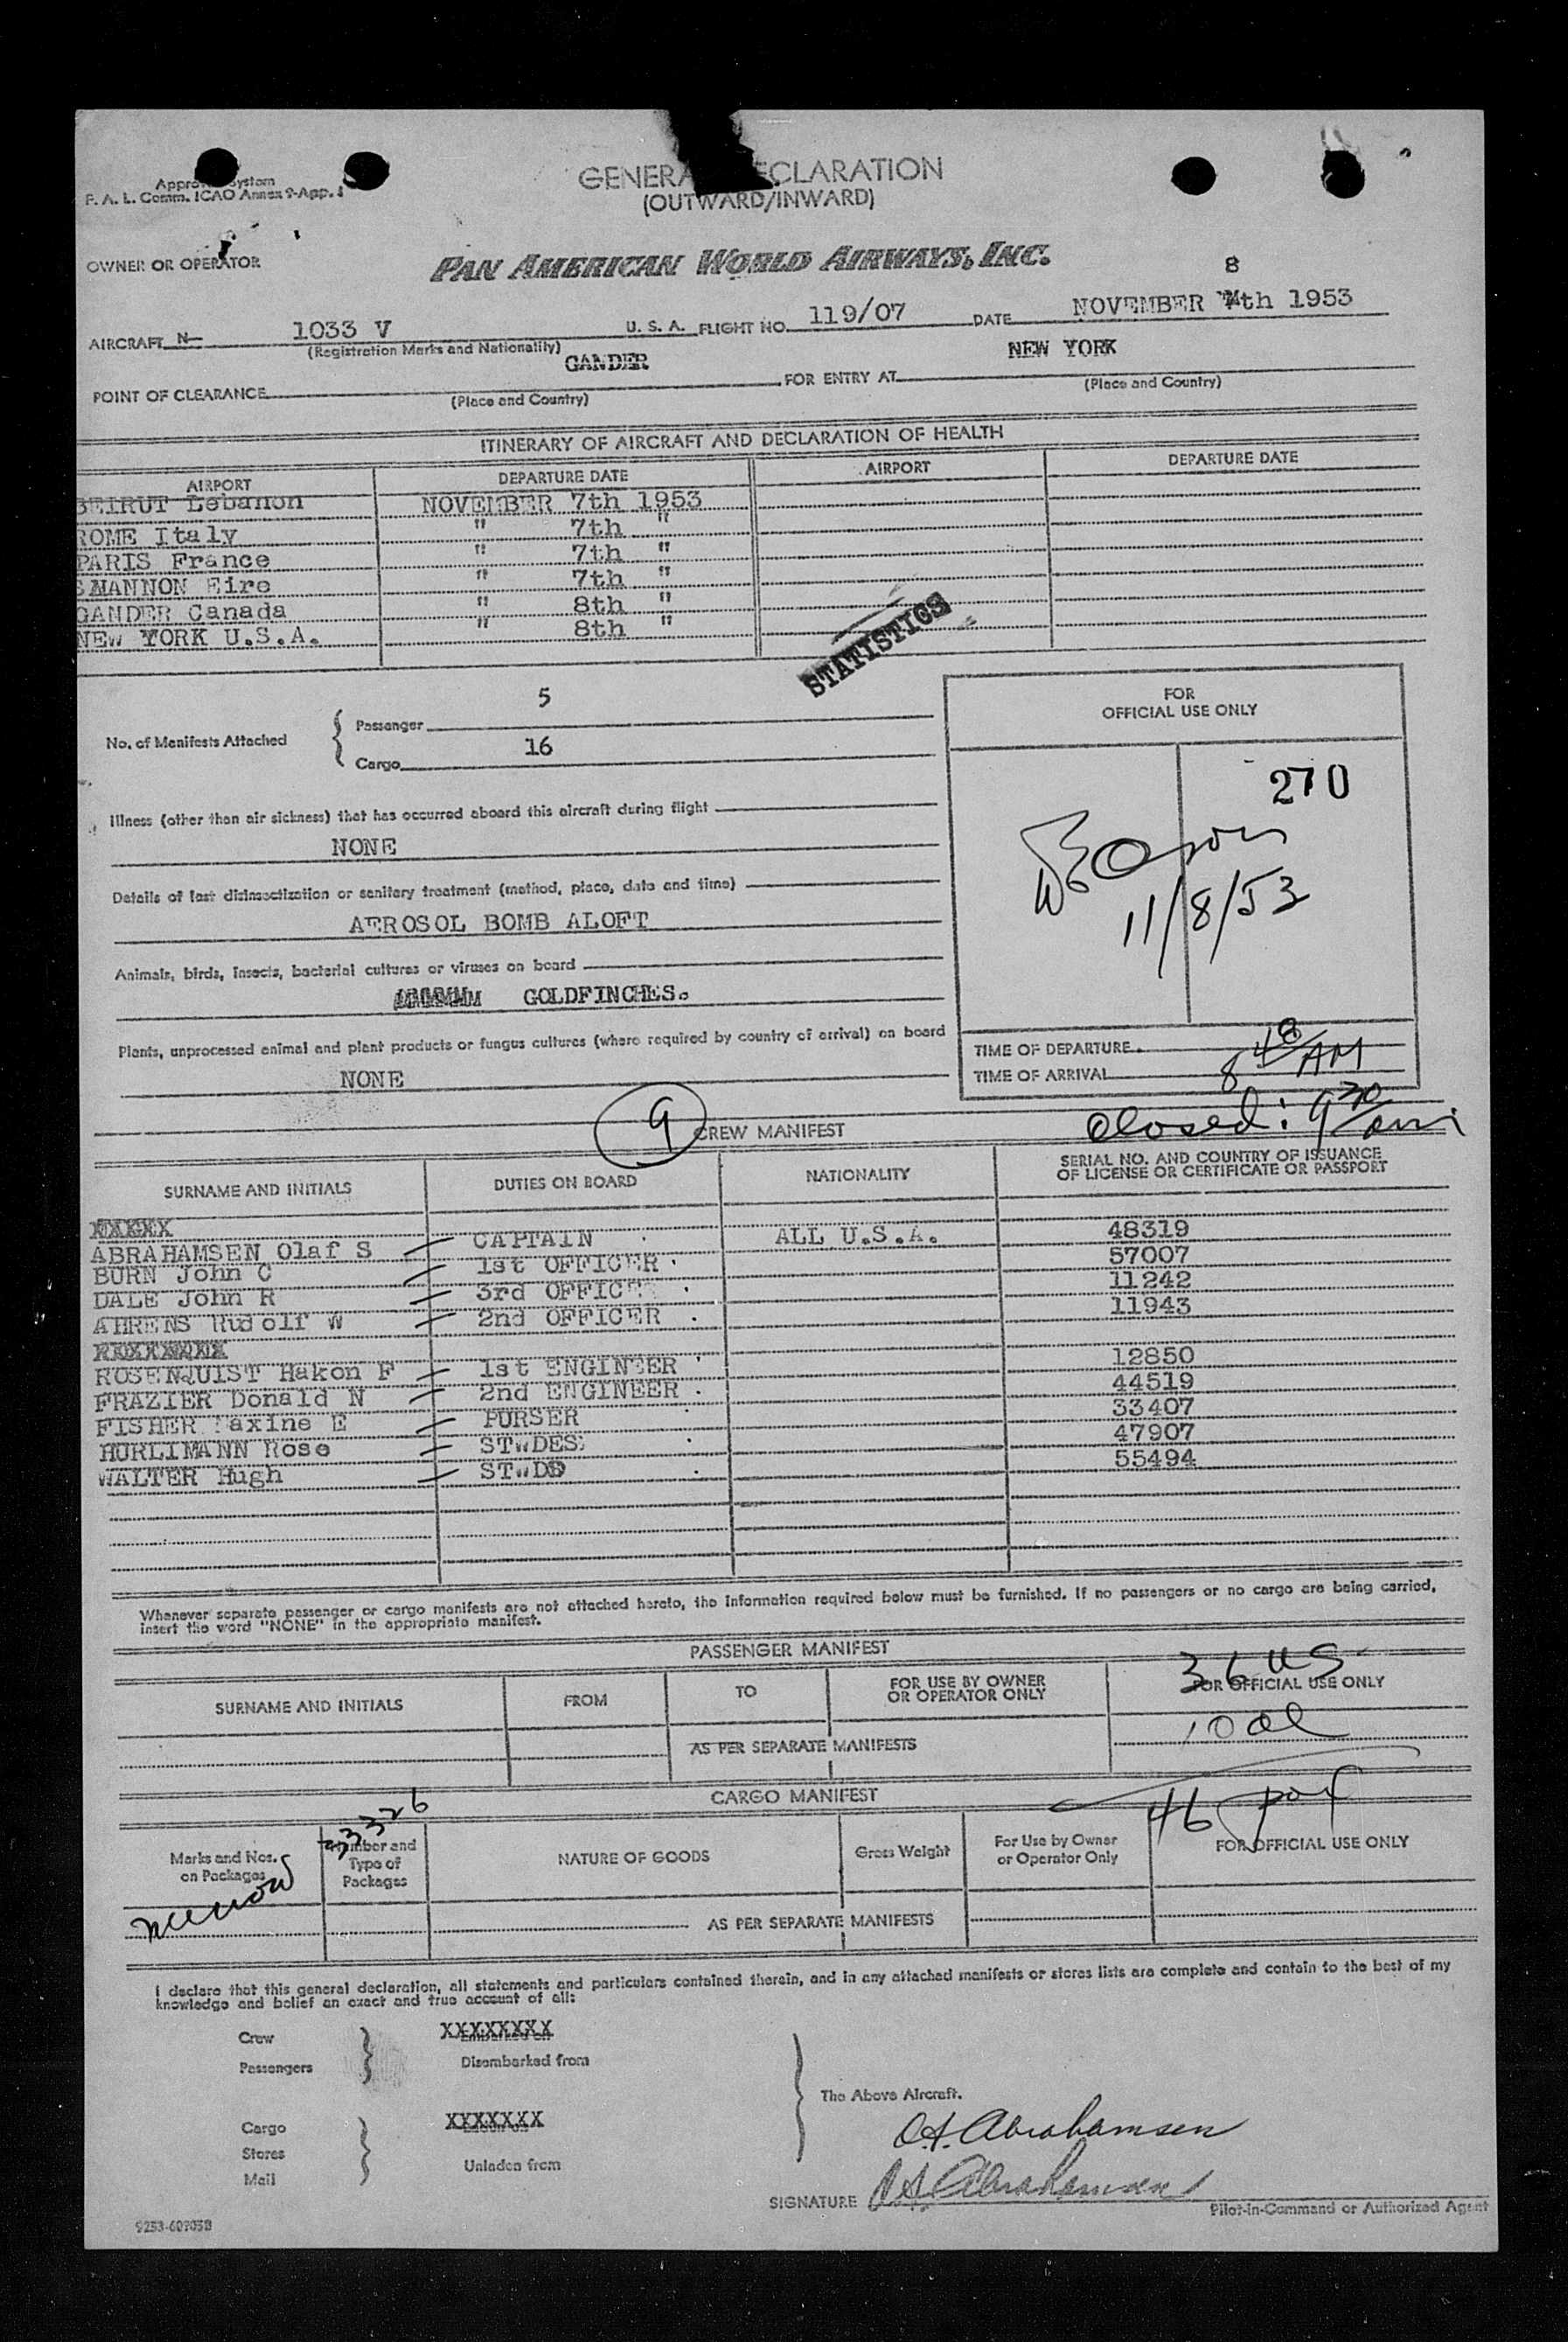 Appro ystem
F. A. L. Comm. ICAO Annex 9-App. 1
GENERA ECLARATION
(OUTWARD/INWARD)
OWNER OR OPERATOR
PAN AMERICAN WORLD AIRWAYS, INC.
8
AIRCRAFT N 1033 V U. S. A. FLIGHT NO. 119/07 DATE NOVEMBER th 1953
(Registration Marks and Nationality)
POINT OF CLEARANCE GANDER FOR ENTRY AT NEW YORK
(Place and Country) (Place and Country)
ITINERARY OF AIRCRAFT AND DECLARATION OF HEALTH
AIRPORT DEPARTURE DATE AIRPORT DEPARTURE DATE
BEIRUT Lebanon NOVEMBER 7th 1953
ROME Italy " 7th "
PARIS France " 7th "
SHANNON Eire " 7th "
GANDER Canada " 8th "
NEW YORK U.S.A. " 8th "
STATISTICS
No. of Manifests Attached
Passenger 5
Cargo 16
FOR
OFFICIAL USE ONLY
270
11/8/53
Illness (other than air sickness) that has occurred aboard this aircraft during flight
NONE
Details of last disinsectization or sanitary treatment (method, place, date and time)
AEROSOL BOMB ALOFT
Animals, birds, insects, bacterial cultures or viruses on board
GOLDFINCHES.
Plants, unprocessed animal and plant products or fungus cultures (where required by country of arrival) on board
NONE
TIME OF DEPARTURE
TIME OF ARRIVAL 8 48 AM
Closed: 9 30 am
9
CREW MANIFEST
SURNAME AND INITIALS DUTIES ON BOARD NATIONALITY SERIAL NO. AND COUNTRY OF ISSUANCE
OF LICENSE OR CERTIFICATE OR PASSPORT
XXXXX
ABRAHAMSEN Olaf S CAPTAIN ALL U.S.A. 48319
BURN John C 1st OFFICER 57007
DALE John R 3rd OFFICE 11242
AHRENS Rudolf W 2nd OFFICER 11943
ROSENQUIST Hakon F 1st ENGINEER 12850
FRAZIER Donald N 2nd ENGINEER 44519
FISHER Maxine E PURSER 33407
HURLIMANN Rose STWDES 47907
WALTER Hugh STWD 55494
Whenever separate passenger or cargo manifests are not attached hereto, the information required below must be furnished. If no passengers or no cargo are being carried,
insert the word "NONE" in the appropriate manifest.
PASSENGER MANIFEST
SURNAME AND INITIALS FROM TO FOR USE BY OWNER
OR OPERATOR ONLY FOR OFFICIAL USE ONLY
36 US
10 al
AS PER SEPARATE MANIFESTS
CARGO MANIFEST
46
Marks and Nos.
on Packages
Number and
Type of
Packages
NATURE OF GOODS
Gross Weight
For Use by Owner
or Operator Only
FOR OFFICIAL USE ONLY
AS PER SEPARATE MANIFESTS
I declare that this general declaration, all statements and particulars contained therein, and in any attached manifests or stores lists are complete and contain to the best of my
knowledge and belief an exact and true account of all:
Crew XXXXXXXX
Passengers Disembarked from
The Above Aircraft.
Cargo XXXXXXX
Stores
Mail Unladen from
O.S. Abrahamsen
SIGNATURE O S Abrahamsen
Pilot-in-Command or Authorized Agent